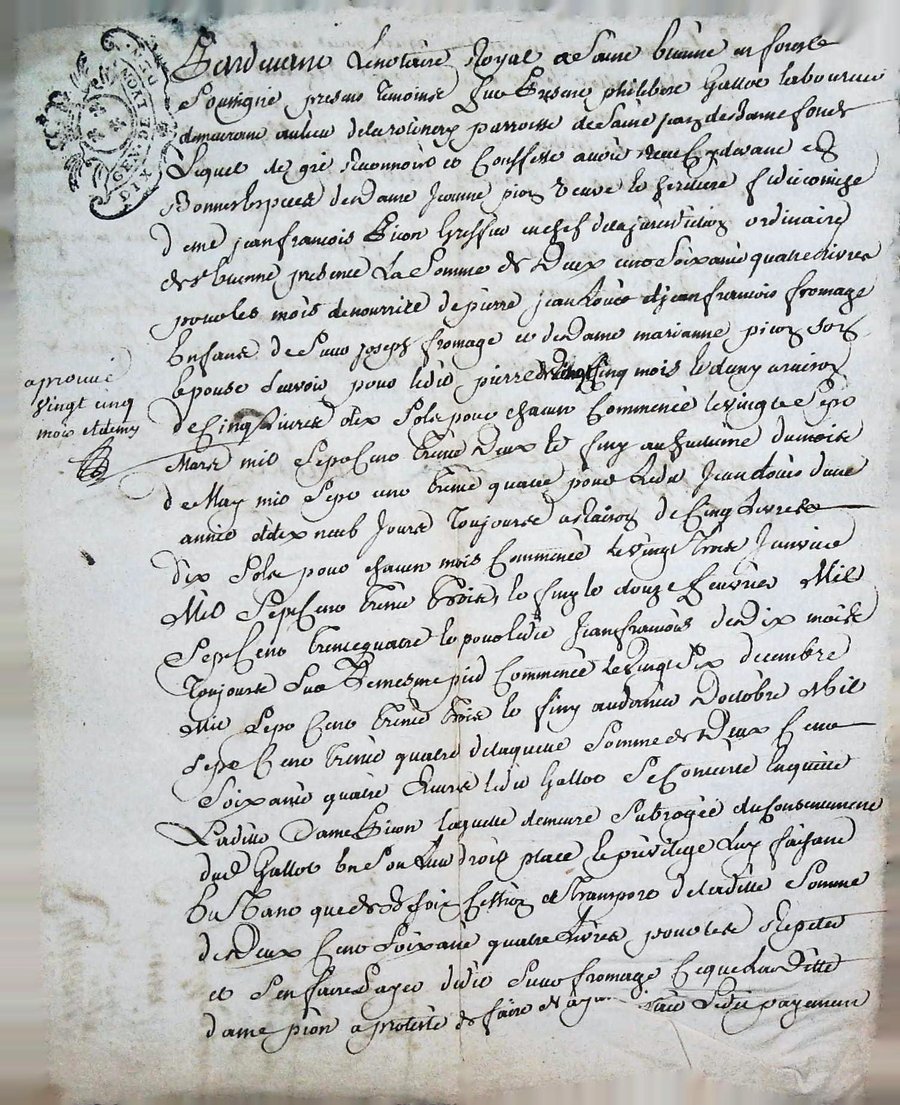 GEN. DE LYON
Pardevant Le notaire Royal a Saint Etienne en forest
Soussigné presens temoins fut presant philibert Gallot laboureur
demeurant au lieu de la parroisse de Saint jean de bonnefond
Lequel de gré Reconnoist et Confesse avoir receu Cy devant en
Bonnes Especes de dame jeanne pion veuve et heritiere fideicomise
de me jean francois greffier en chef de la jurisdiction ordinaire
de st Etienne presente La Somme de Deux cent Soixante quatre livres
pour les mois de nourrite de pierre jean Louis et jean francois fromage
Enfans de Sieur joseph fromage et de dame marianne pion son
Epouse Scavoir pour ledit pierre cinq mois et demy a raison
de Cinq Livres dix Sols pour chacun Commencé le vingt Sept
Mars mil Sept Cent trente Deux et finy au huitieme du mois
de May mil Sept cent trente quatre pour Ledit Jean Louis d'une
année et dix neuf jours toujours a Raison de Cinq Livres
dix Sols pour chacun mois Commencé le vingt trois Janvier
Mil Sept Cent trente trois et finy le douze fevrier Mil
Sept Cent trente quatre et pour ledit Jean francois de Dix mois
toujours Sur le mesme pied Commencé le vingt Six decembre
Mil Sept Cent trente trois et finy au dernier Doctobre Mil
Sept Cent trente quatre de laquelle Somme de Deux Cent
Soixante quatre Livres ledit Gallot Se Contente En quitte
Laditte Dame laquelle demeure Subrogée du Consentement
dud Gallot En Son Lieu droit place et privilege Luy faisant
En tant que de besoin Cession et transport de laditte Somme
de Deux Cent Soixante quatre Livres pour les Repeter
et S'en faire Payer dudit Sieur fromage Ce que laditte
dame pion a protesté de faire Et a fait Ledit payement
aprouvé
vingt cinq
mois et demy